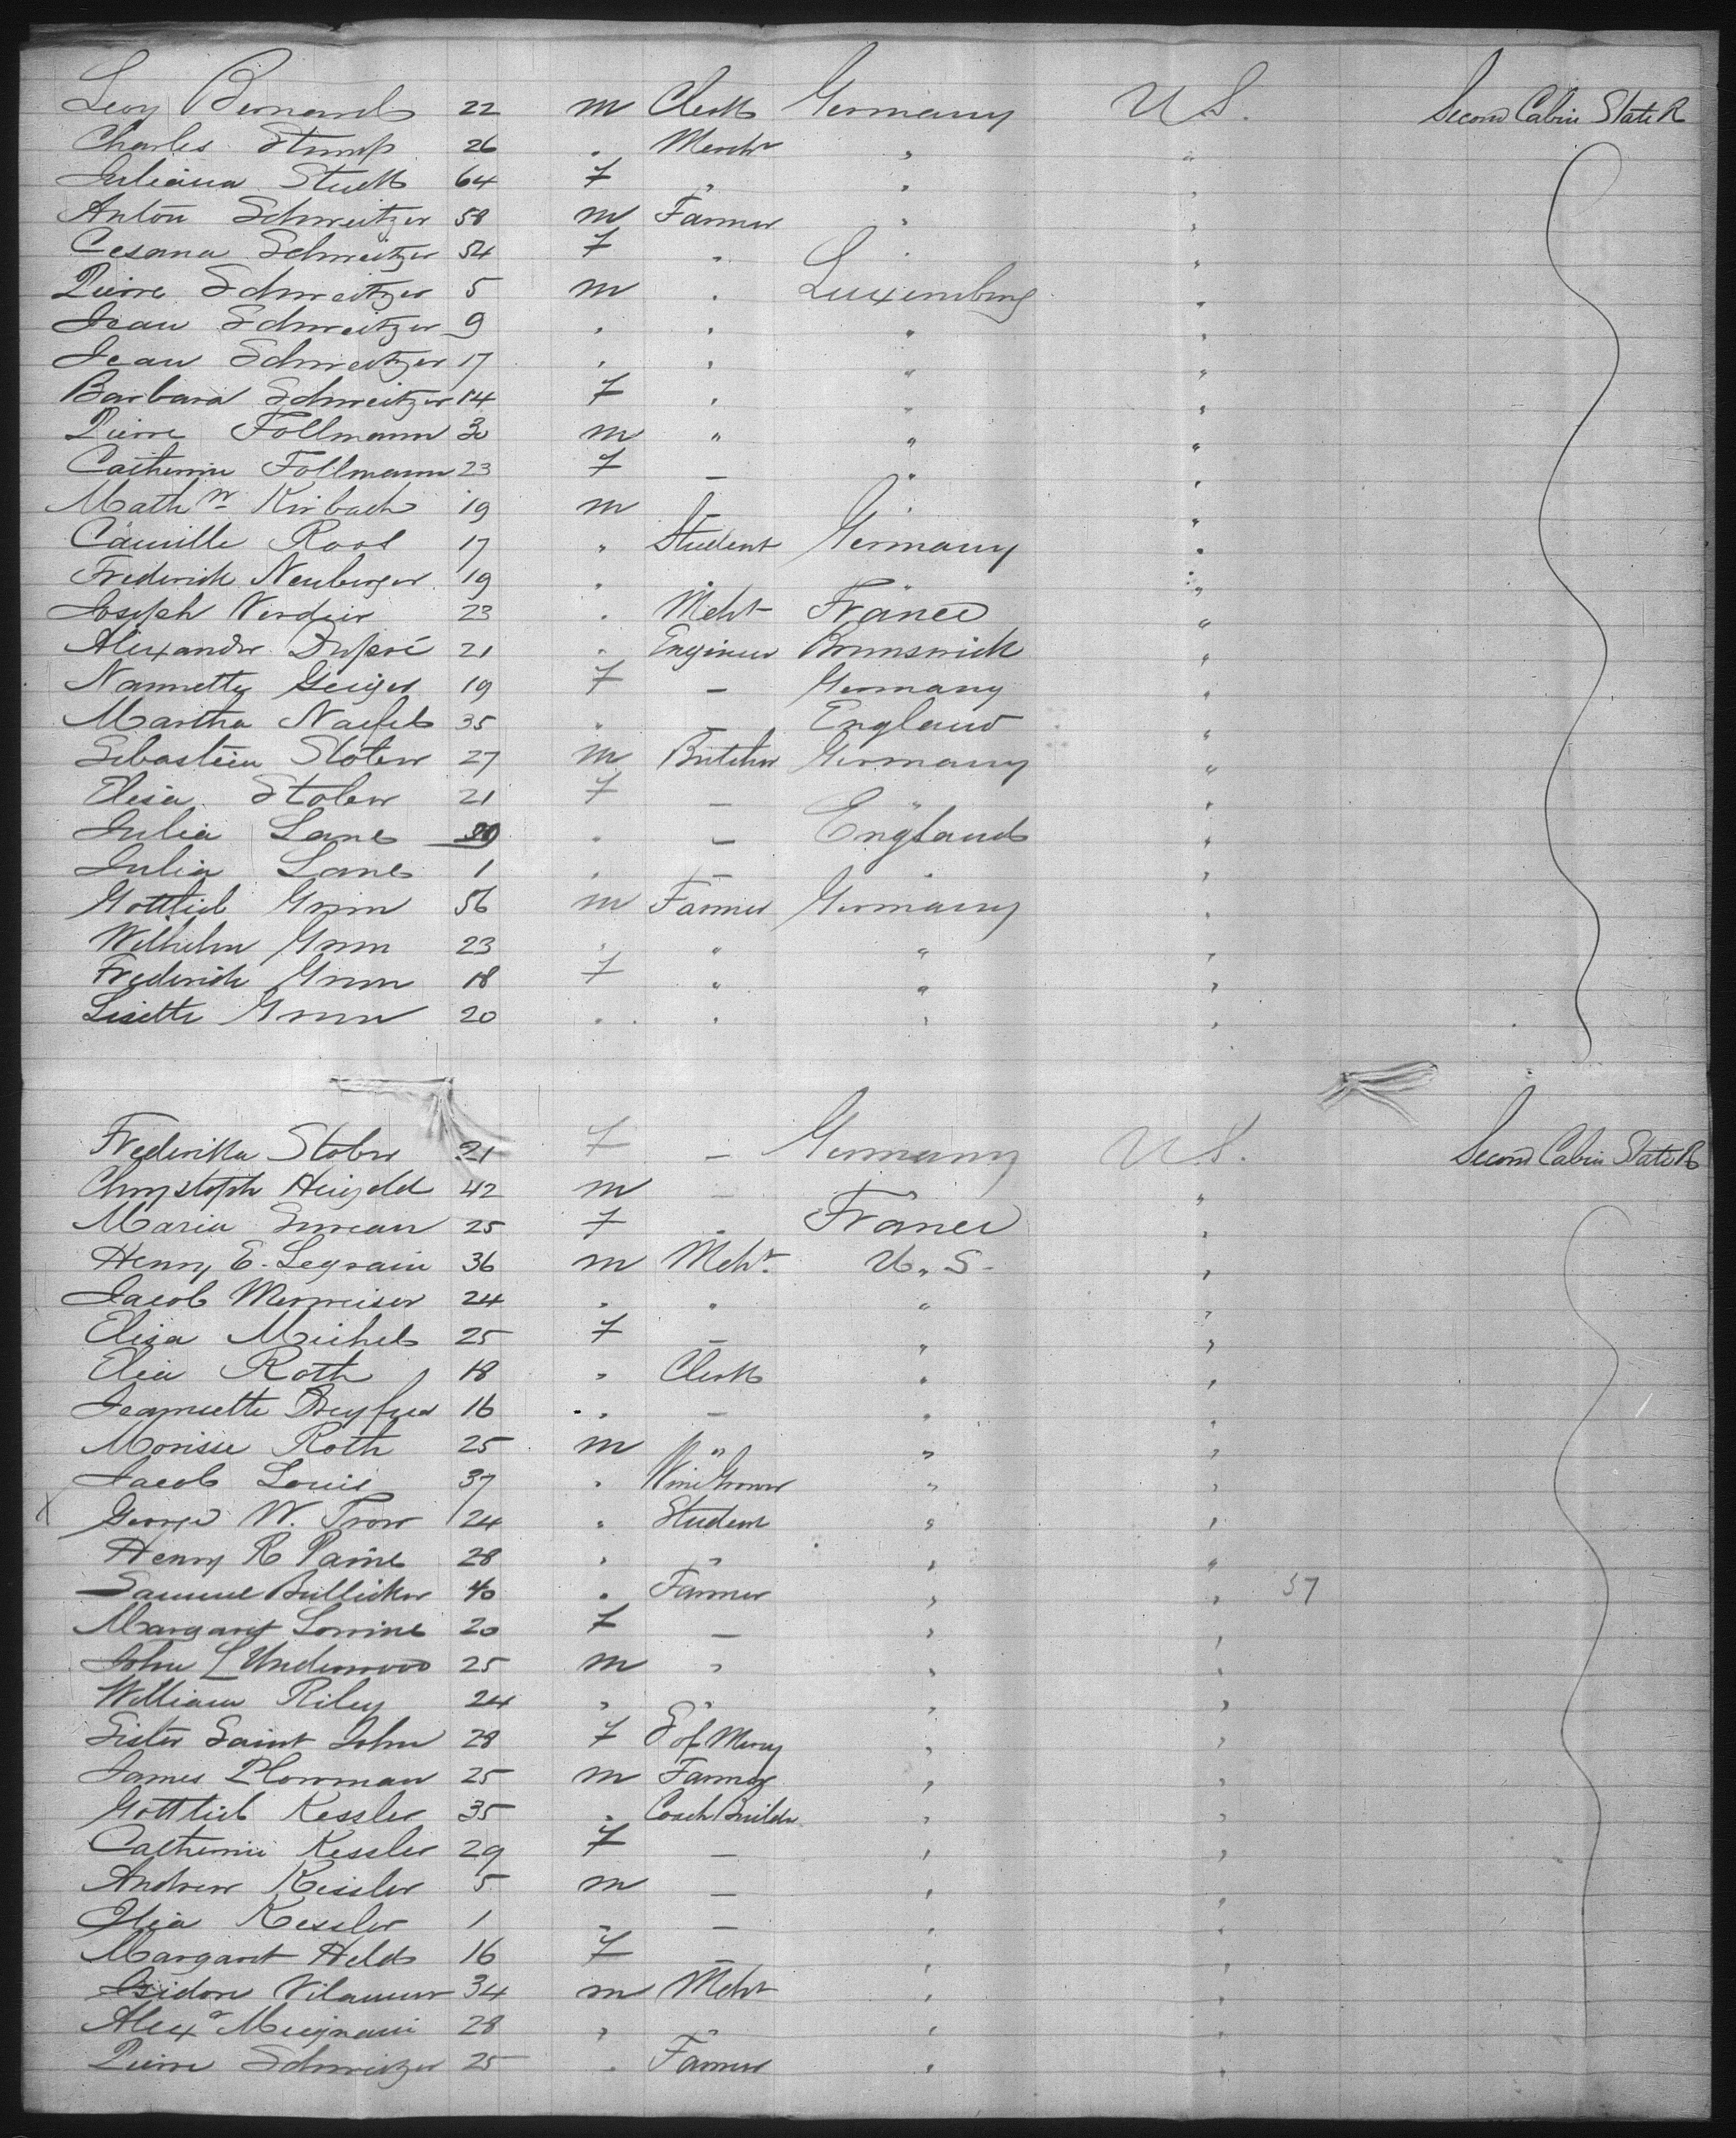 Levy Bernard 22 m Clerk Germany U S. Second Cabin State R
Charles Stump 26 " Mercht " "
Juliana Stuck 64 F " " "
Anton Schweitzer 58 m Farmer " "
Cesana Schweitzer 54 F " " "
Pierre Schweitzer 5 m " Luxemburg "
Jean Schweitzer 9 " " " "
Jean Schweitzer 17 " " " "
Barbara Schweitzer 14 F " " "
Pierre Follmann 30 m " " "
Catherine Follmann 23 F — " "
Math Kirbach 19 m — " "
Camille Roos 17 " Student Germany "
Frederick Neuberger 19 " " " "
Joseph Verdier 23 " Mcht France "
Alexandre Dupré 21 " Engineer Brunswick "
Nannette Geiger 19 F — Germany "
Martha 35 " — England "
Sebastien Stober 27 m Butcher Germany "
Elisa Stober 21 F — " "
Julia Lane " — England "
Julia Lane 1 " — " "
Gottlieb 56 m Farmer Germany "
Wilhelm 23 " " " "
Frederick 18 F " " "
Lisette 20 " " " "
Frederika Stober 21 F — Germany U. S. Second Cabin State R
Chrystoph 42 m — " "
Maria 25 F " France "
Henry E. Legrain 36 m Mcht. U. S. "
Jacob 24 " " " "
Elisa Michel 25 F — " "
Elia Roth 18 " Clerk " "
Jeannette Dreyfus 16 " — " "
Morisse Roth 25 m " " "
Jacob Louis 37 " Wine Grower " "
X George W. Trow 24 " Student " "
Henry R Paine 28 " " " "
Samuel 40 " Farmer " " 57
Margaret Lorrine 20 F — " "
John L Underwood 25 m " " "
William Riley 24 " " " "
Sister Saint John 28 F S of Mercy " "
James Plowman 25 m Farmer " "
Gottlieb Kessler 35 " Coach Builder " "
Catherine Kessler 29 F — " "
Andrew Kessler 5 m — " "
Kessler 1 " — " "
Margaret Held 16 F — " "
Isidore 34 m Mcht " "
Alexr 28 " " " "
Pierre Schweitzer 25 " Farmer " "